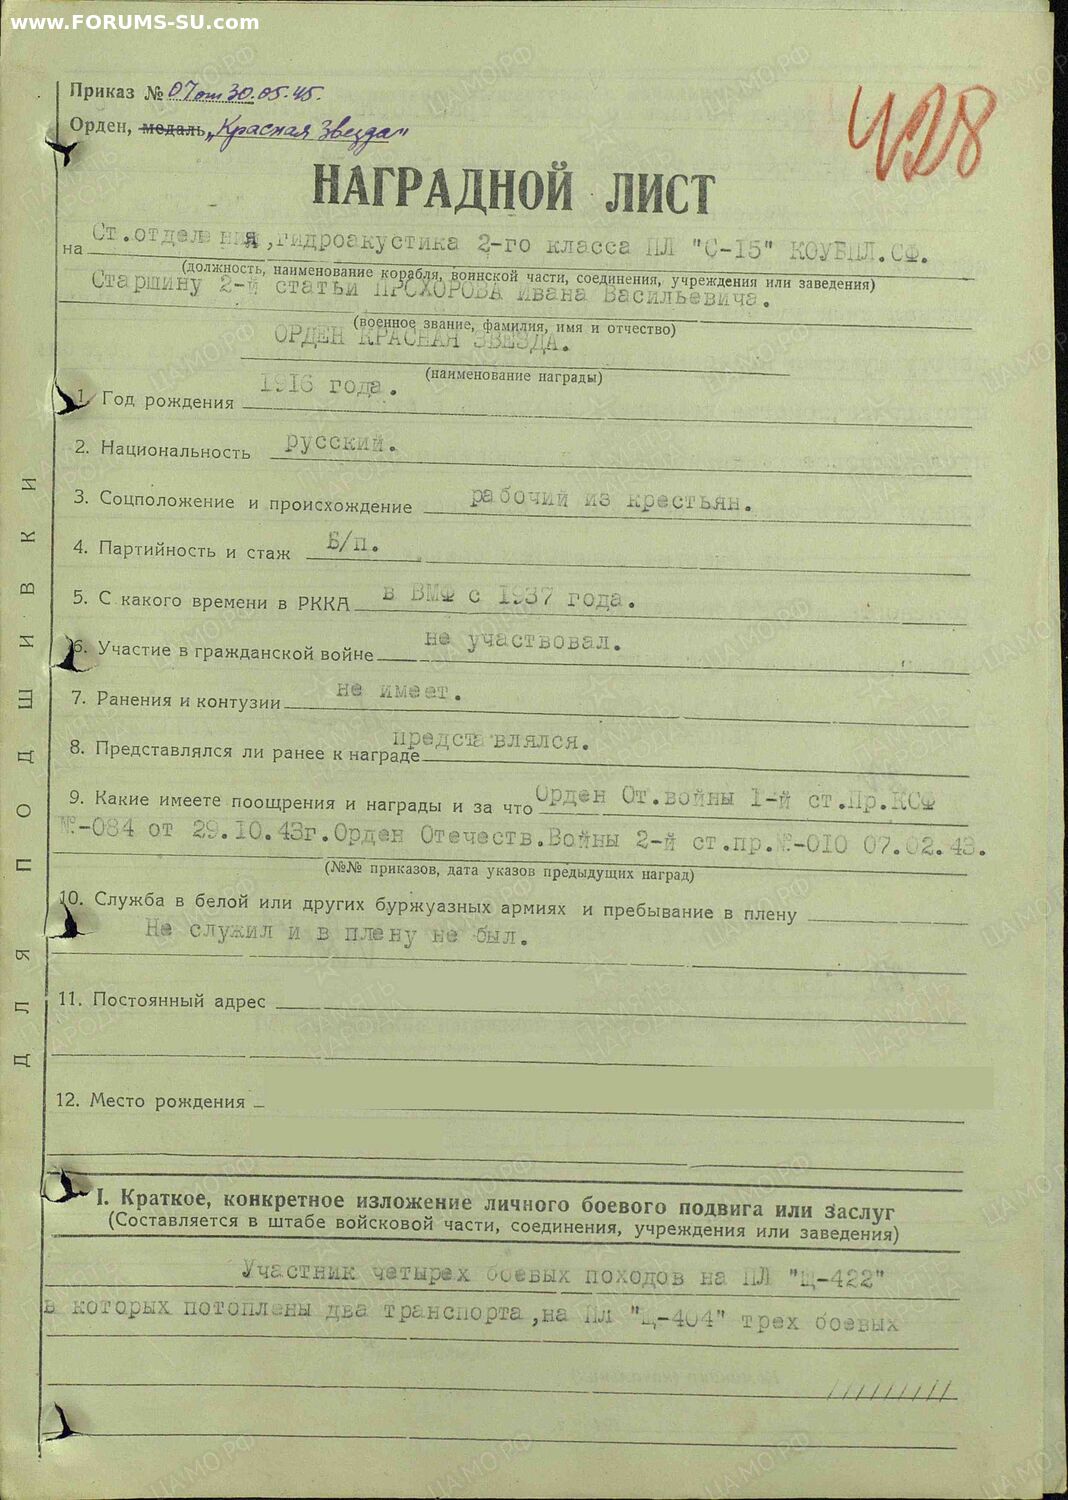 www.FORUMS-SU.com
Приказ № 07 от 30.05.45.
Орден, медаль „Красная Звезда"
428
НАГРАДНОЙ ЛИСТ
на Ст.отделения,гидроакустика 2-го класса ПЛ "С-15" КОУБПЛ.СФ.
(должность, наименование корабля, воинской части, соединения, учреждения или заведения)
Старшину 2-й статьи ПРОХОРОВА Ивана Васильевича.
(военное звание, фамилия, имя и отчество)
ОРДЕН КРАСНАЯ ЗВЕЗДА.
(наименование награды)
1. Год рождения 1916 года.
2. Национальность русский.
3. Соцположение и происхождение рабочий из крестьян.
4. Партийность и стаж Б/п.
5. С какого времени в РККА в ВМФ с 1937 года.
6. Участие в гражданской войне не участвовал.
7. Ранения и контузии не имеет.
8. Представлялся ли ранее к награде представлялся.
9. Какие имеете поощрения и награды и за что Орден От.войны 1-й ст.Пр.КСФ
№-084 от 29.10.43г.Орден Отечеств.Войны 2-й ст.пр.№-010 07.02.43.
(№№ приказов, дата указов предыдущих наград)
10. Служба в белой или других буржуазных армиях и пребывание в плену
Не служил и в плену не был.
11. Постоянный адрес
12. Место рождения
I. Краткое, конкретное изложение личного боевого подвига или Заслуг
(Составляется в штабе войсковой части, соединения, учреждения или заведения)
Участник четырех боевых походов на ПЛ "Щ-422"
в которых потоплены два транспорта,на ПЛ "Щ-404" трех боевых
ДЛЯ ПОДШИВКИ